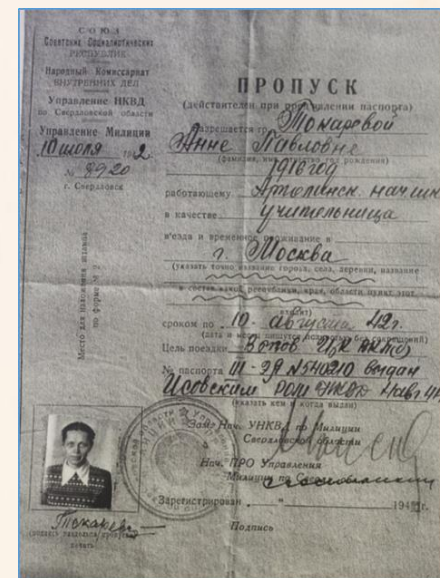 СОЮЗ
Советских Социалистических
РЕСПУБЛИК
Народный Комиссариат
ВНУТРЕННИХ ДЕЛ
Управление НКВД
по Свердловской области
Управление Милиции
10 июля 1942
№ 8920
г. Свердловск
Место для наложения штампа
по форме №
ПРОПУСК
(действителен при предъявлении паспорта)
Разрешается гр. Токаревой
Анне Павловне
(фамилия, имя, отчество, год рождения)
1916 год
работающему Артеминск. нач. шк
в качестве учительница
в'езда и временное проживание в
г. Москва
(указать точно название города, села, деревни, название
в состав какой республики, края, области пункт этот
входит)
сроком по 10 августа 42 г.
(дата и месяц пишутся полностью без сокращений)
Цель поездки
№ паспорта III-ЭЯ №540210 выдан
Исовским РОМ НКВД
(указать кем и когда выдан)
Зам. Нач. УНКВД по Милиции
Свердловской области
Нач. ПРО Управления
Милиции по
Зарегистрирован " 194 г.
Подпись
Токарева